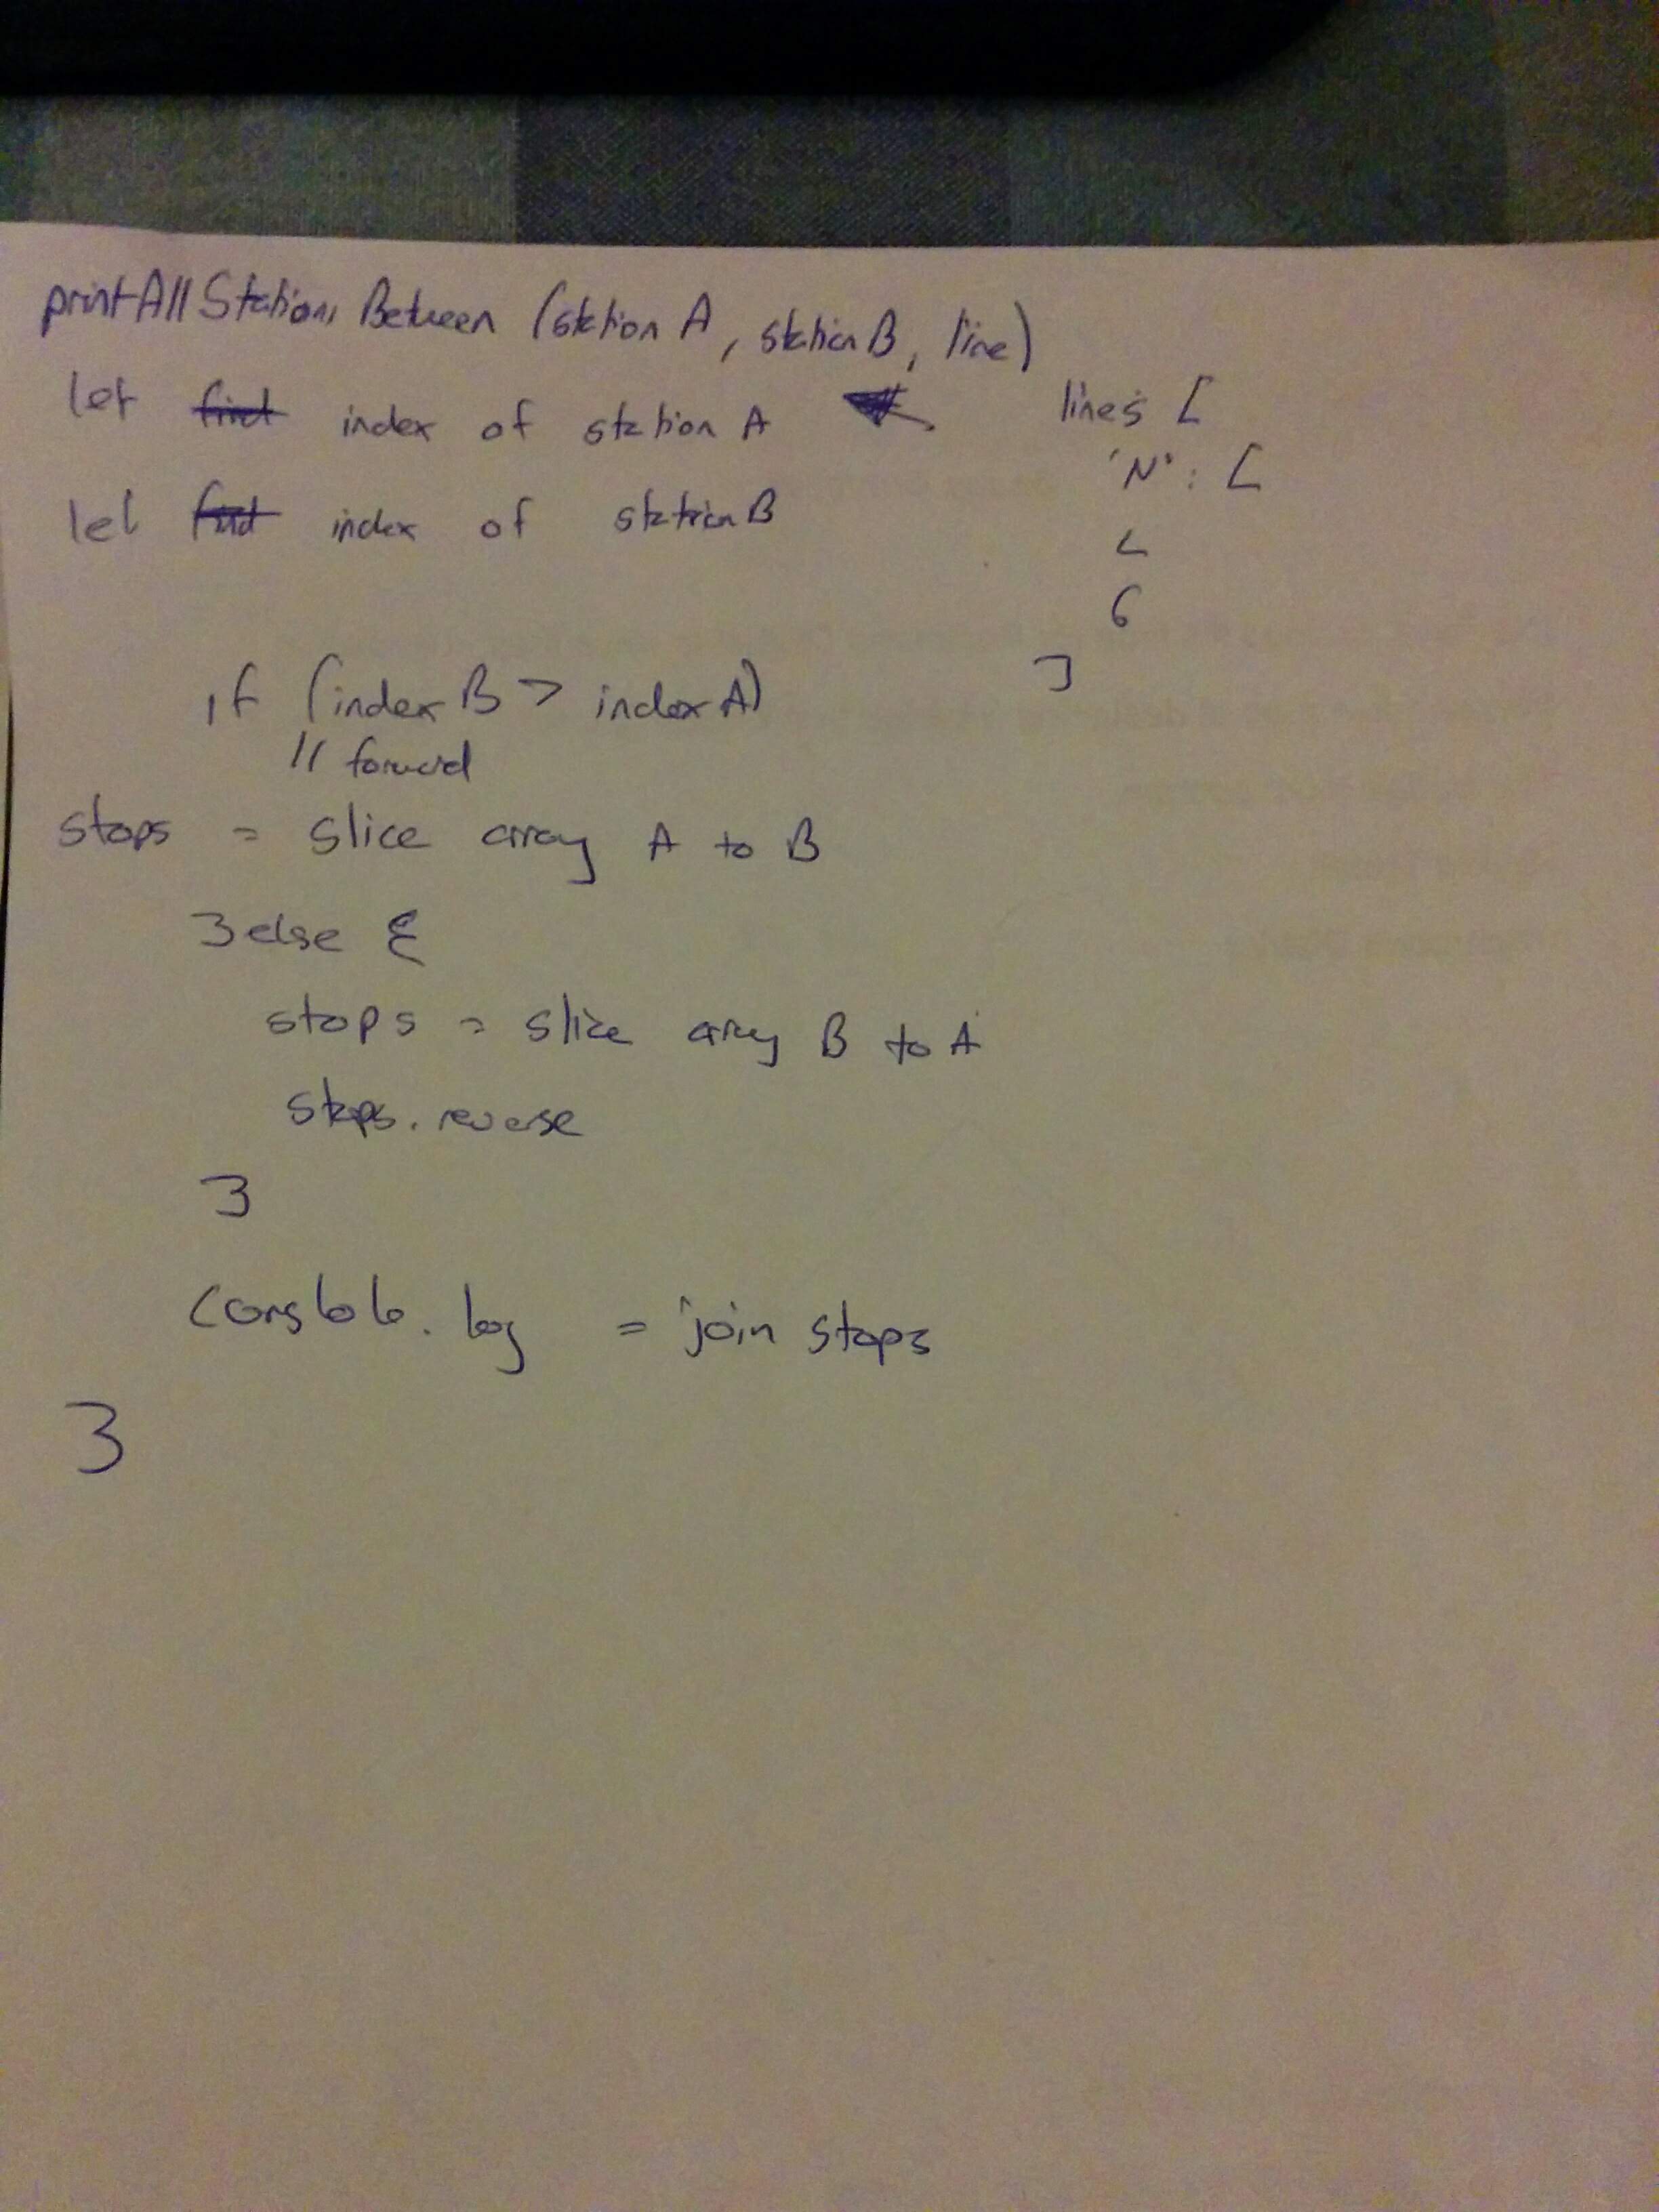 printAllStations Between (station A, station B, line)
let find index of station A
let find index of station B
if (index B > index A)
// forward
stops = slice array A to B
} else {
stops = slice array B to A
stops. reverse
}
. log = join stops
}
lines [
'N': [
L
6
]